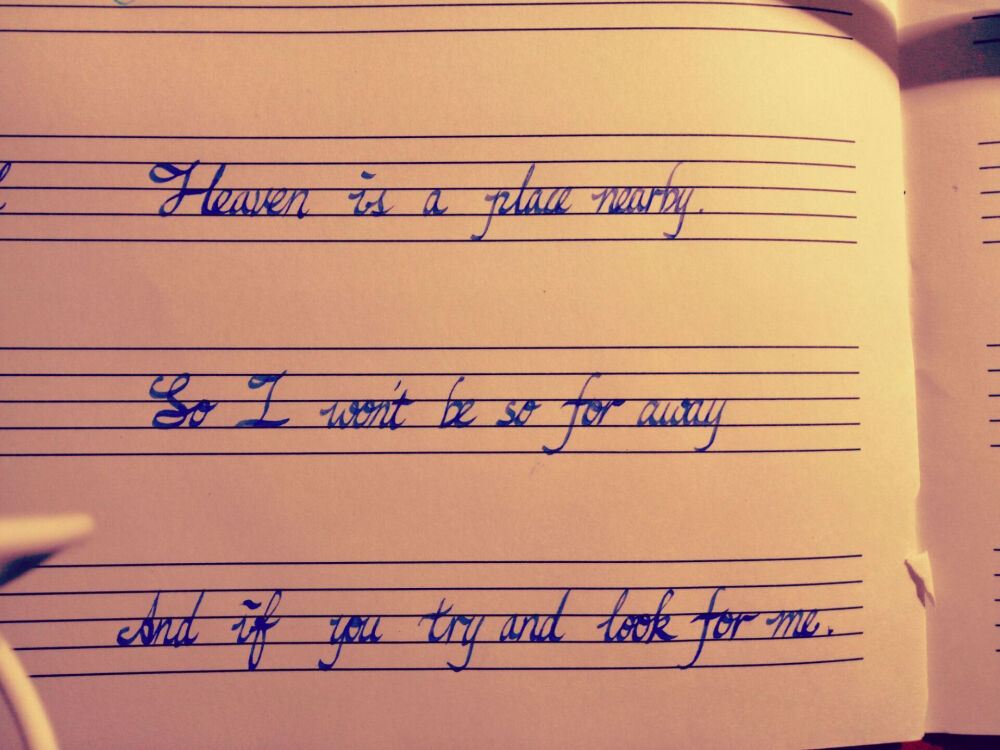 Heaven is a place nearby.
So I won't be so for away
And if you try and look for me.